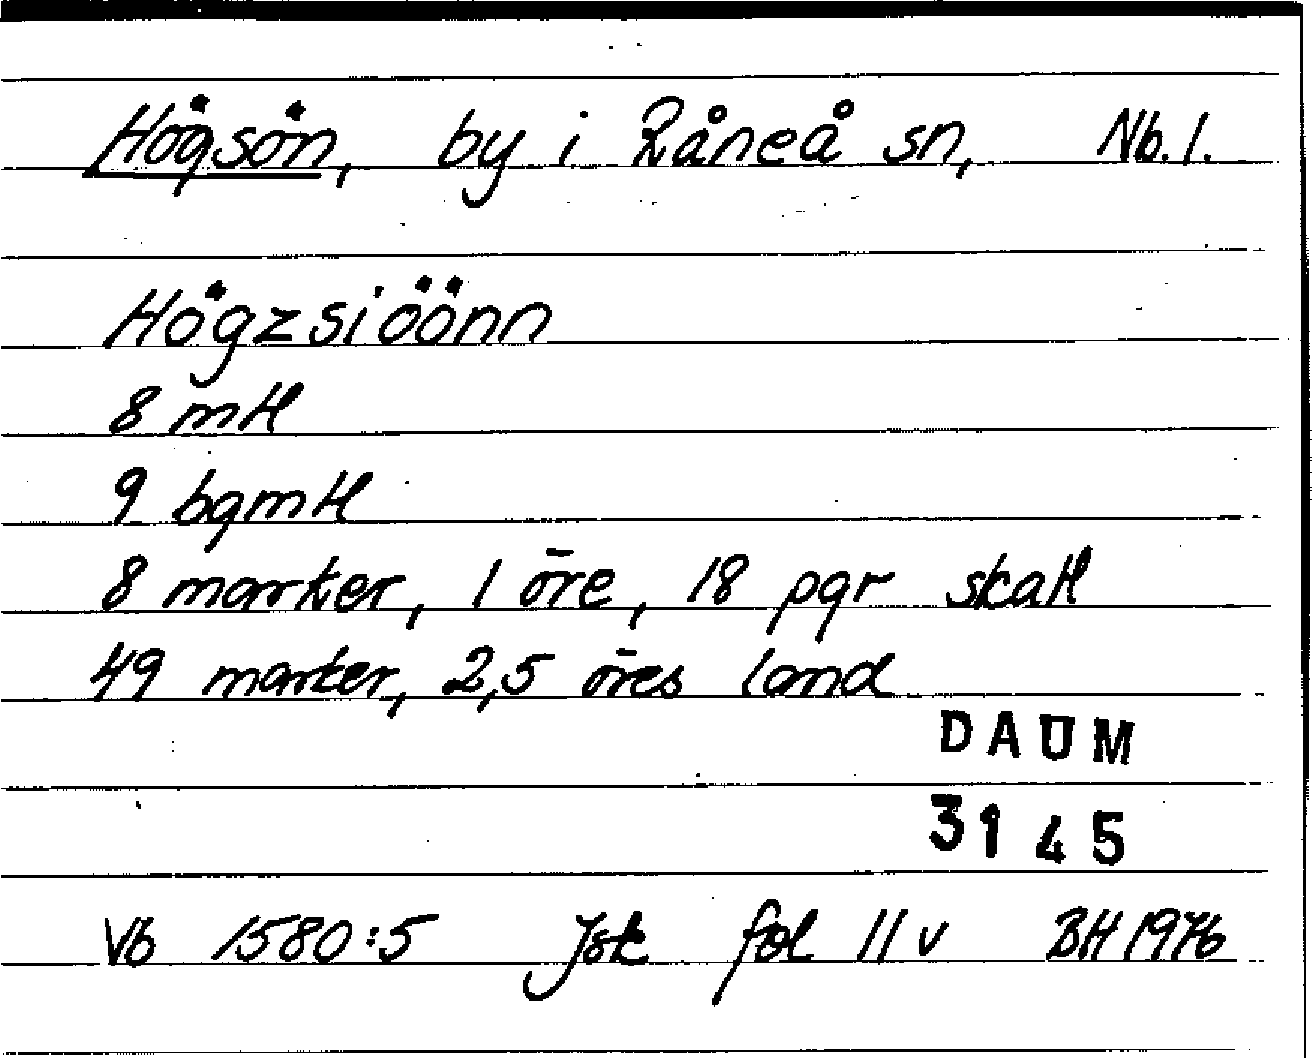 Högsön, by i Råneå sn, Nb. l.
Högzsiöönn
8 mtl
9 bgmtl
8 marker, 1 öre, 18 pgr skatt
49 marker, 2,5 öres land
DAUM
3145
Vb 1580:5 Jsk fol 11 v BH 1976